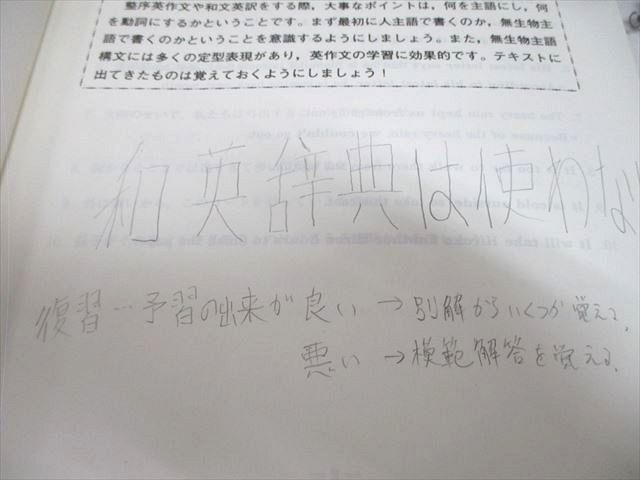 整序英作文や和文英訳をする際，大事なポイントは，何を主語にし，何
を動詞にするかということです。まず最初に人主語で書くのか，無生物主
語で書くのかということを意識するようにしましょう。また，無生物主語
構文には多くの定型表現があり，英作文の学習に効果的です。テキストに
出てきたものは覚えておくようにしましょう！
和英辞典は使わな
復習…予習の出来が良い→別解からいくつか覚える。
悪い→模範解答を覚える。